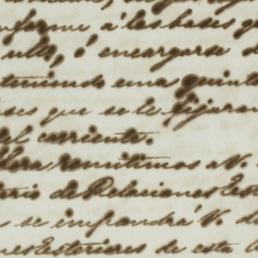 conforme á las bases q
ulta, ó encargarse d
teniendo una quinta
ses que se le fijaran
el corriente.
hora remitimos a V.
tario de Relaciones Est
se impondrá V. de
nes Esteriores de esta